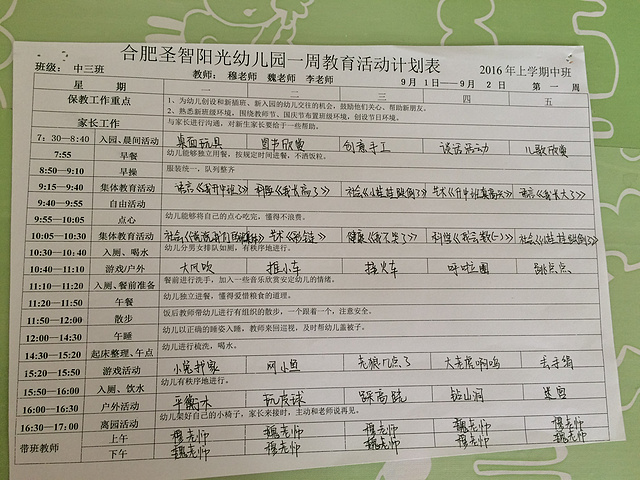 合肥圣智阳光幼儿园一周教育活动计划表
班级： 中三班 教师： 穆老师 魏老师 李老师 9月1日——9月2日 2016年上学期中班 第一周
星 期 一 二 三 四 五
保教工作重点 1、为幼儿创设和新插班、新入园的幼儿交往的机会，鼓励他们关心、帮助新朋友。
2、熟悉新班级环境，围绕教师节、国庆节布置班级环境，创设节日环境。
家长工作 与家长进行沟通，对新生家长要给于一些帮助。
7：30—8:40 入园、晨间活动 桌面玩具 图书欣赏 创意手工 谈话活动 儿歌欣赏
7:55 早餐 幼儿能够独立用餐，按规定时间进餐，不洒饭粒。
8:50—9:10 早操 统一服装，队列整齐
9:15—9:40 集体教育活动 语言《我升中班了》 科程《我长高了》 社会《小娃娃跌倒了》 艺术 语言《我长大了》
9:40—9:55 自由活动
9:55—10:05 点心 幼儿能够将自己的点心吃完，懂得不浪费。
10:05—10:30 集体教育活动 社会 艺术 健康《我不哭了》 科学《我会数(一)》 社会《小娃娃跌倒了》
10:30—10:40 入厕、喝水 幼儿分男女排队如厕，有秩序地进行。
10:40—11:10 游戏/户外 大风吹 推小车 接火车 呼啦圈 跳点点
11:10—11:20 入厕、餐前准备 餐前进行洗手，加入一些音乐欣赏安定幼儿的情绪。
11:20—11:50 午餐 幼儿独立进餐，懂得爱惜粮食的道理。
11:50—12:00 散步 饭后教师带幼儿进行有组织的散步，一个跟着一个，注意安全。
12:00—14:30 午睡 幼儿以正确的睡姿入睡，教师来回巡视，及时帮幼儿盖被子。
14:30—15:20 起床整理、午点 幼儿进行梳洗，喝水。
15:20—15:50 游戏活动 小兔抄家 网小鱼 老狼几点了 大老虎啊呜 丢手绢
15:50—16:00 入厕、饮水 幼儿有秩序地进行。
16:00—16:30 户外活动 平衡木 玩皮球 踩高跷 钻山洞 迷宫
16:30—17:00 离园活动 幼儿架好自己的小椅子，家长来接时，主动和老师说再见。
带班教师 上午 穆老师 魏老师 穆老师 魏老师 穆老师
下午 魏老师 穆老师 魏老师 穆老师 魏老师